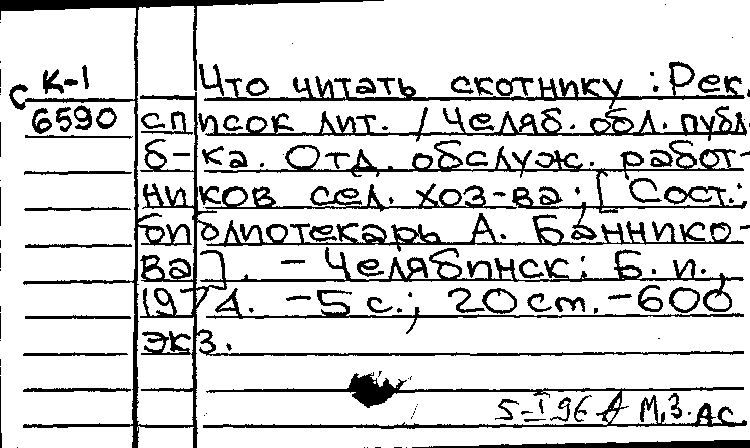 с К-1
6590
Что читать скотнику : Рек.
список лит. / Челяб. обл. публ.
б-ка. Отд. обслуж. работ-
ников сел. хоз-ва; [Сост.:
библиотекарь А. Баннико-
ва]. - Челябинск: Б. и.,
1974. - 5 с.; 20 см. - 600
экз.
5-I 96 М.З. АС